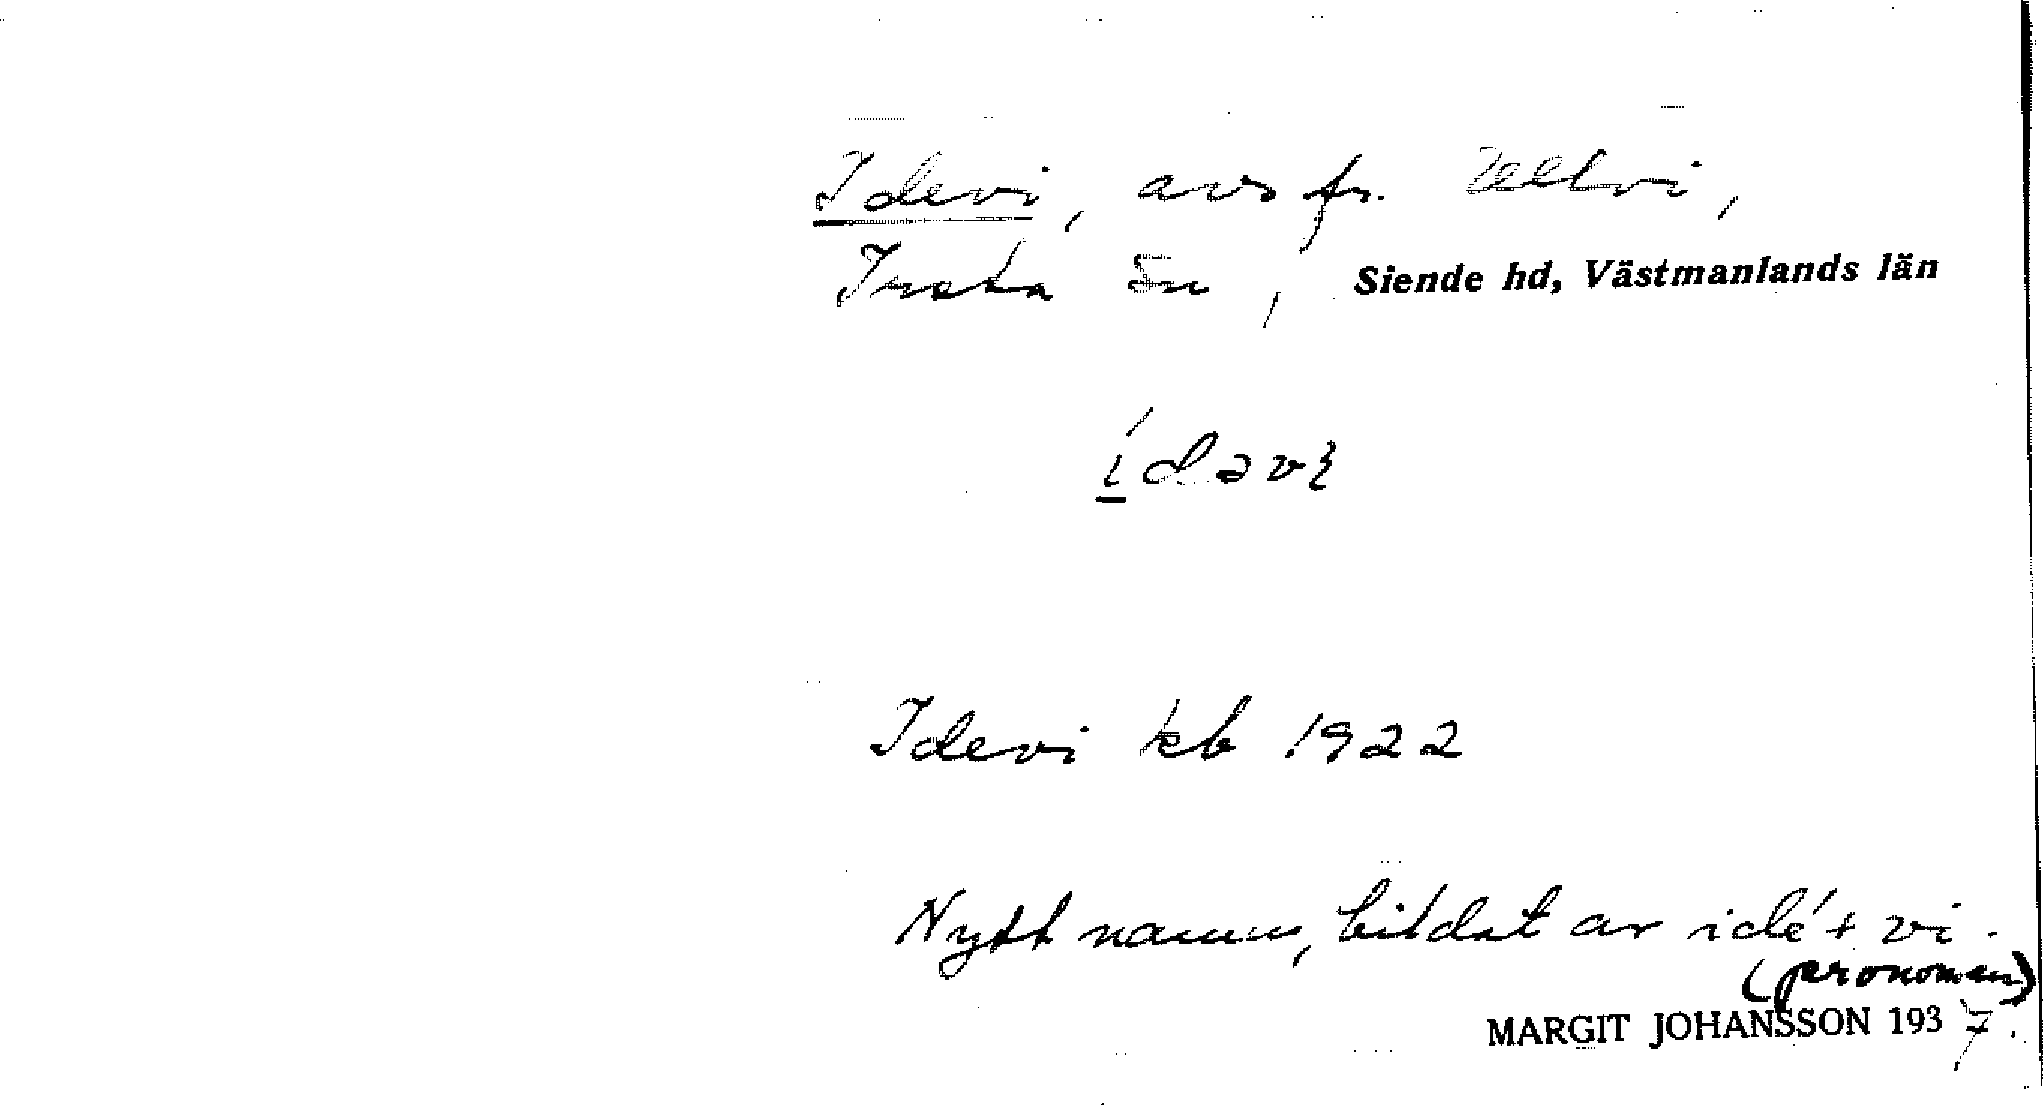 Idevi, avs fr. Ultvi,
Irsta sn, Siende hd, Västmanlands län
ídəvi
Idevi kb 1922
Nytt namn, bildat av idé + vi.
(pronomen)
MARGIT JOHANSSON 1937.